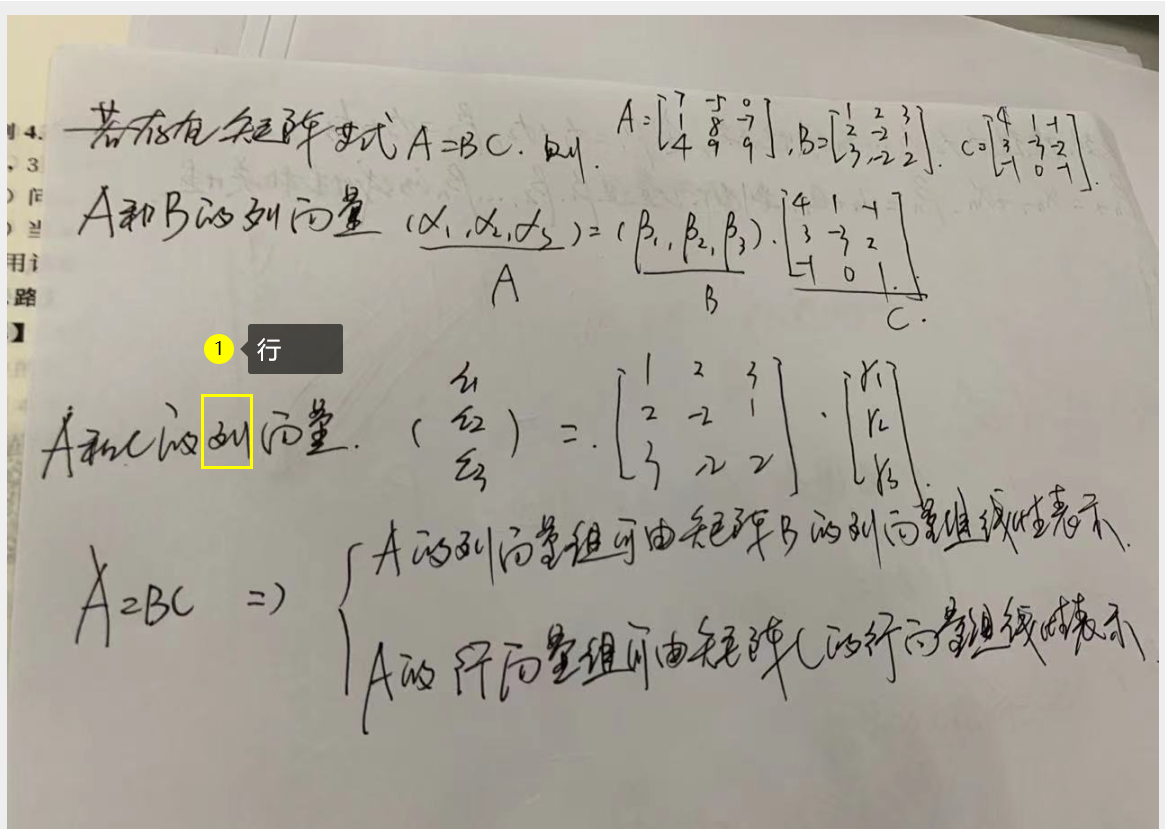 若存在矩阵等式 A=BC. 则. A=[7 -5 0 / 1 8 -7 / 4 9 9], B=[1 2 3 / 2 -2 1 / 3 -2 2]. C=[4 1 -1 / 3 -3 -2 / -1 0 -1].
A和B的列向量 (α1, α2, α3) = (β1, β2, β3) · [4 1 -1 / 3 -3 2 / -1 0 1]
A B C.
1 行
A和C的列向量. (ξ1 ξ2 ξ3) = [1 2 3 / 2 -2 1 / 3 -2 2] · [γ1 γ2 γ3]
A=BC => { A的列向量组可由矩阵B的列向量组线性表示.
A的行向量组可由矩阵C的行向量组线性表示
4.
, 3
问
当
用
路
】